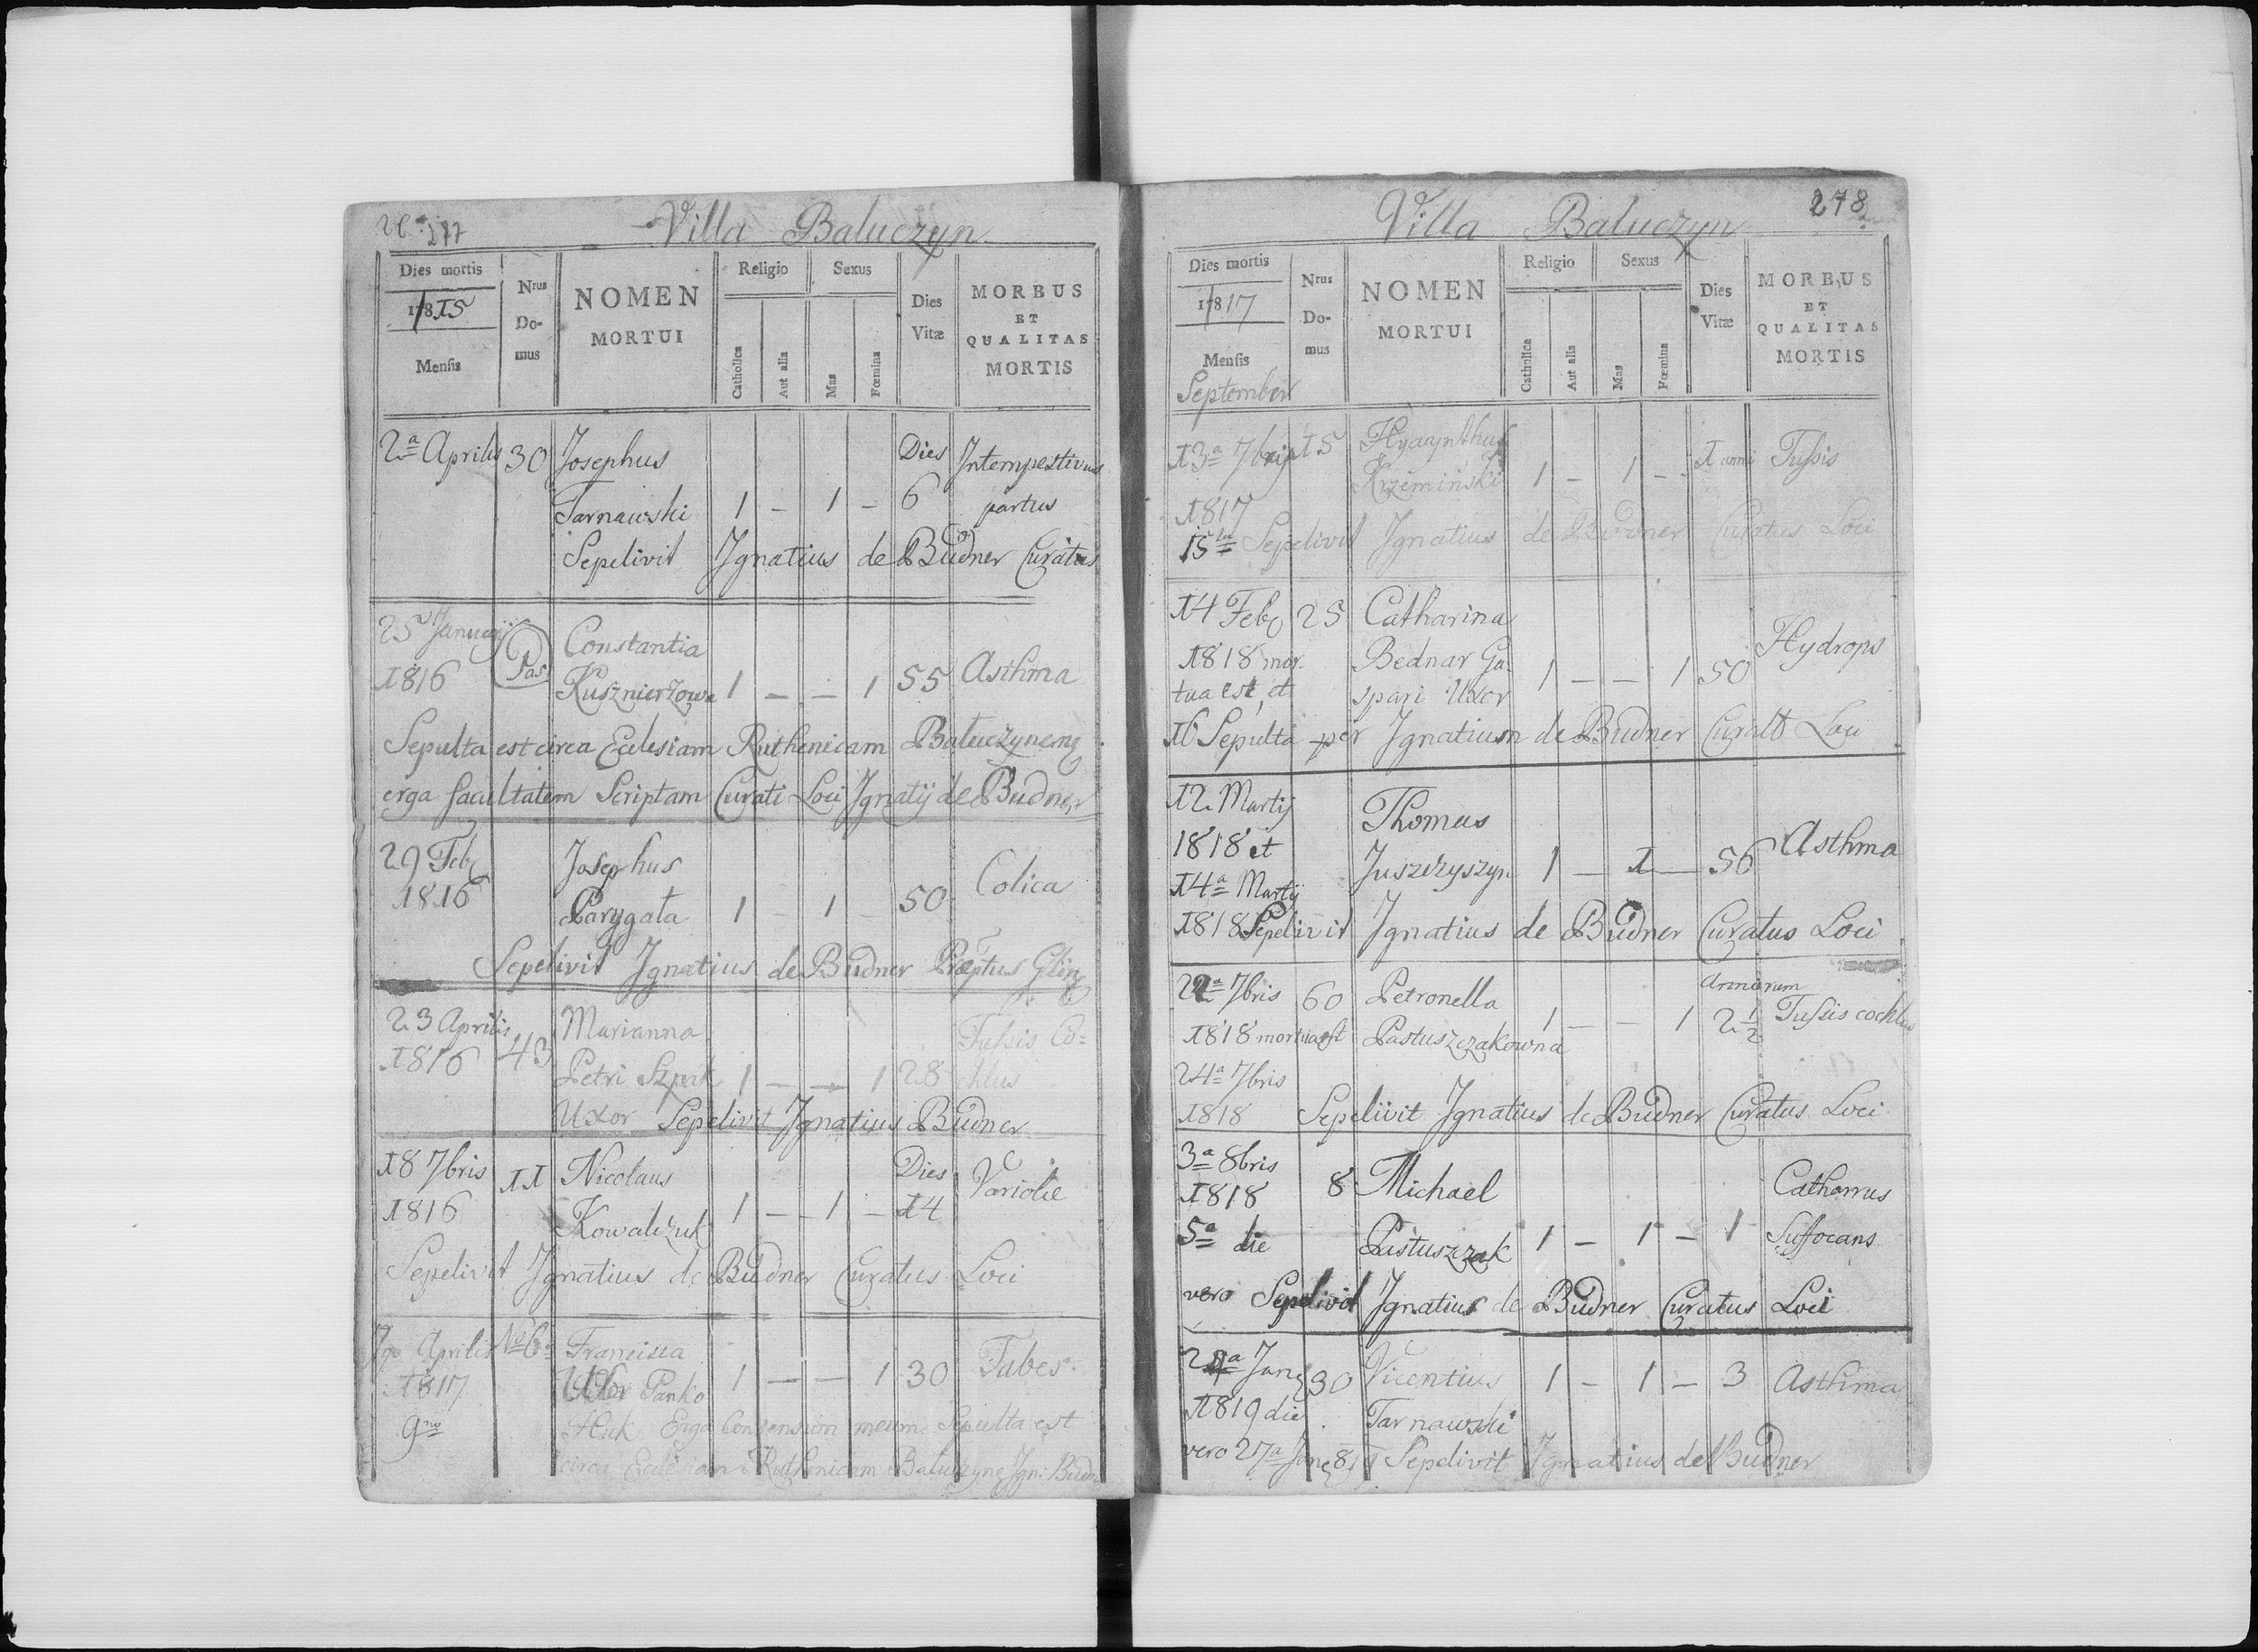 277
Villa Baluczyn
Dies mortis
1815
Mensis
Nrus Domus
NOMEN MORTUI
Religio
Catholica
Aut alia
Sexus
Mas
Fœmina
Dies Vitæ
MORBUS ET QUALITAS MORTIS
2a Aprilis 30 Josephus Dies Intempestivus
Tarnawski 1 - 1 - 6 partus
Sepelivit Ignatius de Budner Curatus
25 Januarij Constantia
1816 Pas. Kusznierzowa 1 - - 1 55 Asthma
Sepulta est circa Eclesiam Ruthenicam
erga facultatem Scriptam Curati Loci Ignatij de Budner
29 Feb Josephus Colica
1816 Parygata 1 - 1 - 50
Sepelivit Ignatius de Budner
23 Aprilis 43 Marianna Tussis Co=
1816 Petri Szpak 1 - - 1 28 chlus
Uxor Sepelivit Ignatius Budner
18 7bris 11 Nicolaus Dies Variolæ
1816 Kowalczuk 1 - - 1 - 14
Sepelivit Ignatius de Budner Curatus Loci
Aprilis No 6 Francisca
1817 Uxor Panko 1 - - 1 30 Tabes
9na Huk Erga Consensum meum Sepulta est
circa Eclesiam Ruthenicam
278
Villa Baluczyn
Dies mortis
1817
Mensis
September
Nrus Domus
NOMEN MORTUI
Religio
Catholica
Aut alia
Sexus
Mas
Fœmina
Dies Vitæ
MORBUS ET QUALITAS MORTIS
13a 7bris 15 Hyacynthus 1 anni Tussis
Krzeminski 1 - 1 -
1817
15 Sepelivit Ignatius de Budner Curatus Loci
14 Feb 25 Catharina
1818 mor- Bednar Ga- 1 - - 1 50 Hydrops
tua est, et spari Uxor
16 Sepulta per Ignatium de Budner Loci
12 Martij Thomas
1818 et Juszczyszyn 1 - 1 - 56 Asthma
14a Martij
1818 Sepelivit Ignatius de Budner Curatus Loci
7bris 60 Petronella annorum
1818 mortua est Pastuszczakowna 1 - - 1 2 1/2 Tussis cochlus
24a 7bris
1818 Sepelivit Ignatius de Budner Curatus Loci
3a 8bris 8 Michael Catharrus
1818
5a die Pastuszczak 1 - 1 - 1 Suffocans
vero Sepelivit Ignatius de Budner Curatus Loci
Jan 30 Vicentius 1 - 1 - 3 Asthma
1819 die Tarnawski
vero 27a Jan Sepelivit Ignatius de Budner